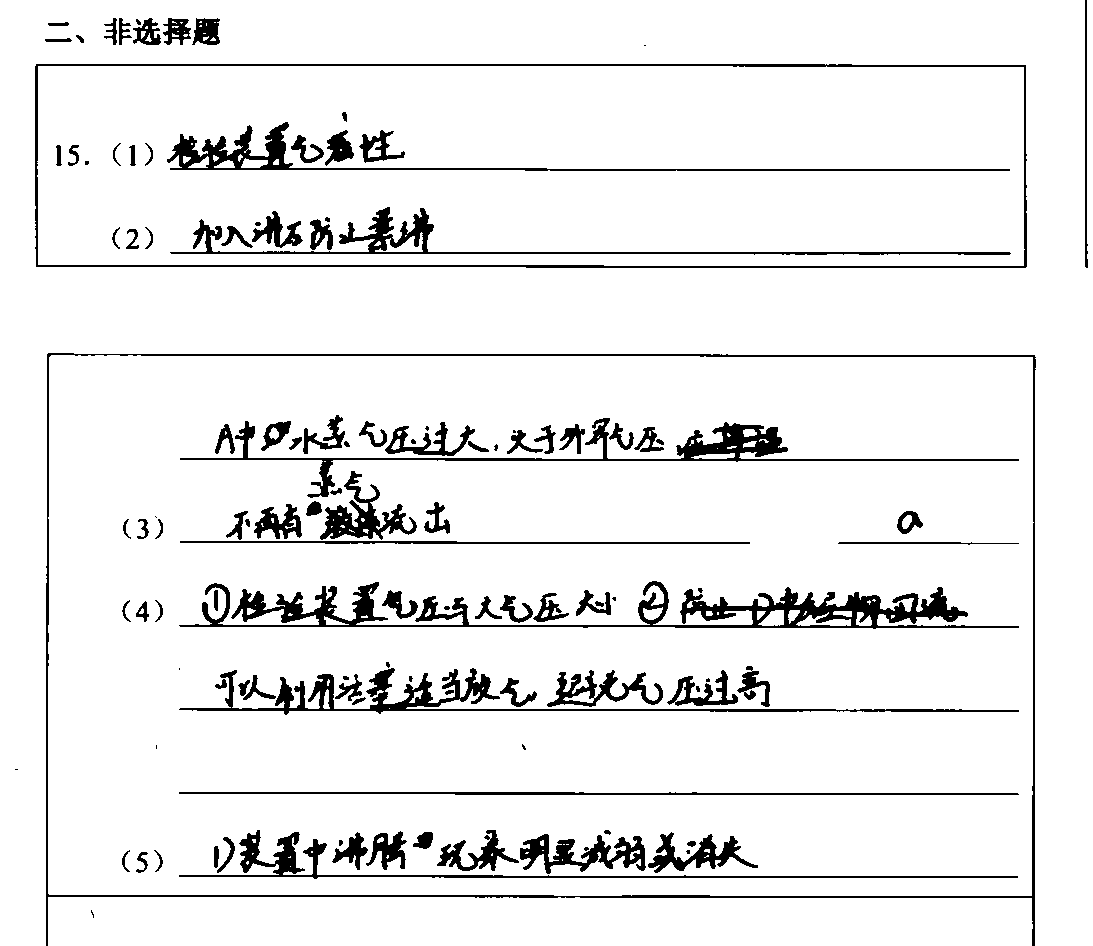 二、非选择题
15.（1）检验装置气密性
（2）加入沸石防止暴沸
A中水蒸气压过大，大于外界气压
蒸气
（3）不再有流出 a
（4）①检验装置气压与大气压大小 ②防止D中反应物回流
可以利用活塞适当放气，避免气压过高
（5）D装置中沸腾现象明显减弱或消失